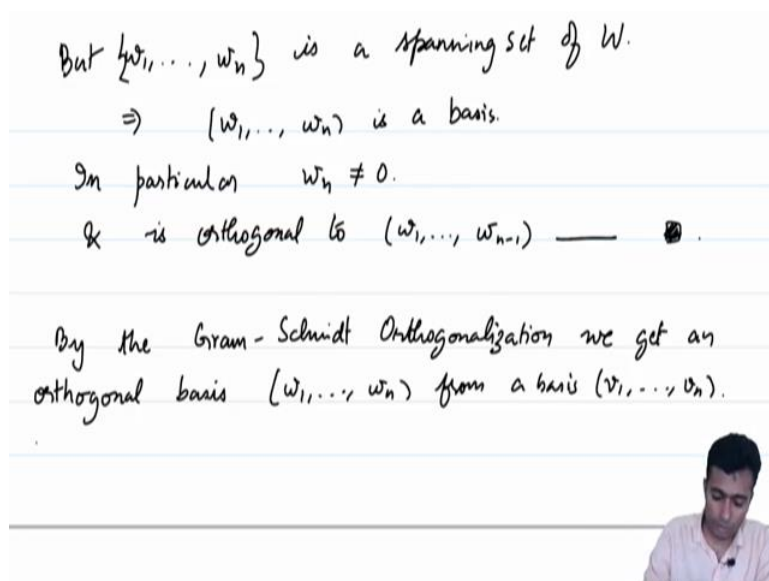 But {w₁, ..., wₙ} is a spanning set of W.
⇒ (w₁, .., wₙ) is a basis.
In particular wₙ ≠ 0.
& is orthogonal to (w₁, ..., wₙ₋₁) —— ■.
By the Gram-Schmidt Orthogonalization we get an
orthogonal basis (w₁, ..., wₙ) from a basis (v₁, ..., vₙ).